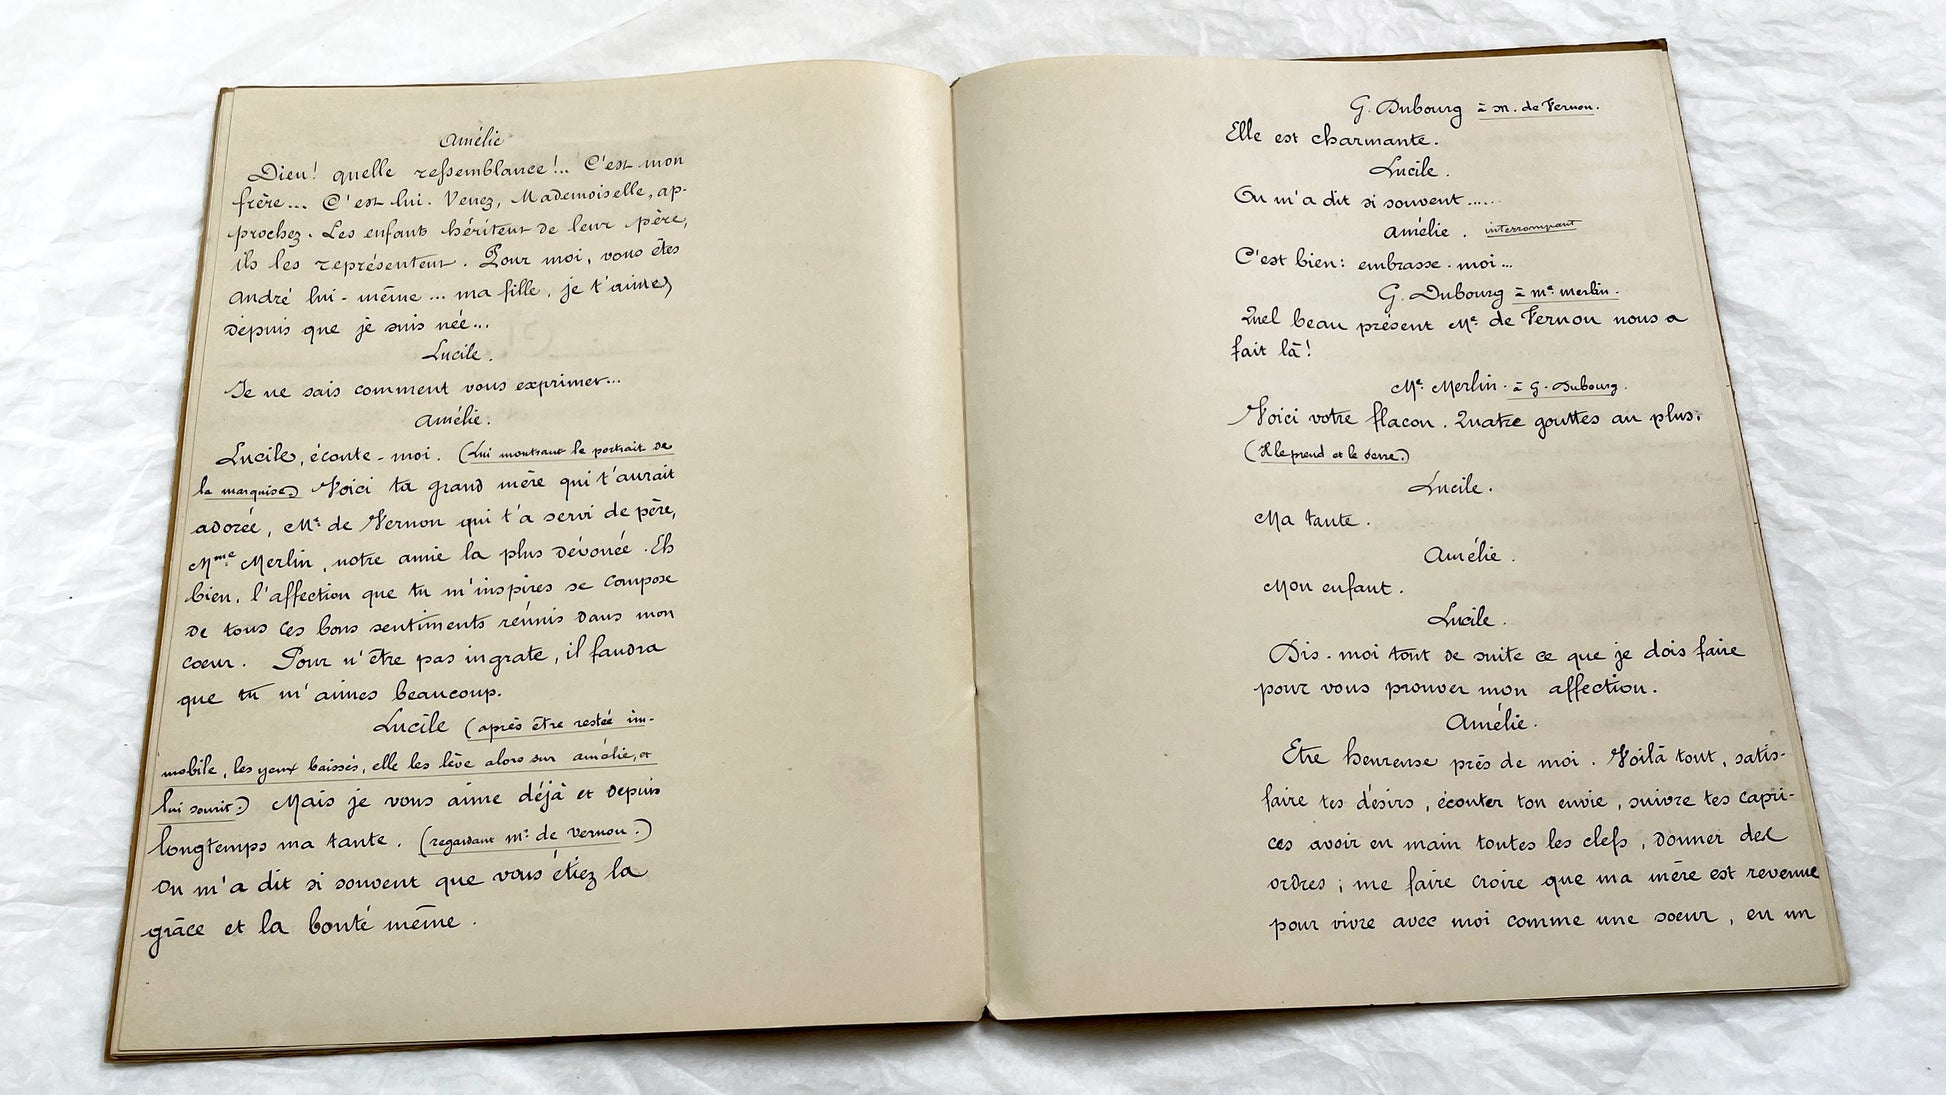 Amélie
Dieu! quelle ressemblance!.. C'est mon
frère... C'est lui. Venez, Mademoiselle, ap-
prochez. Les enfants héritent de leur père,
ils les représentent. Pour moi, vous êtes
André lui-même... ma fille, je t'aime
depuis que je suis née...
Lucile.
Je ne sais comment vous exprimer...
Amélie.
Lucile, écoute-moi. (Lui montrant le portrait de
la marquise) Voici ta grand mère qui t'aurait
adorée, Mr. de Vernon qui t'a servi de père,
Mme Merlin, notre amie la plus dévouée. Eh
bien, l'affection que tu m'inspires se compose
de tous ces bons sentiments réunis dans mon
coeur. Pour n'être pas ingrate, il faudra
que tu m'aimes beaucoup.
Lucile (après être restée im-
mobile, les yeux baissés, elle les lève alors sur amélie, et
lui sourit.) Mais je vous aime déjà et depuis
longtemps ma tante. (regardant Mr. de Vernon.)
On m'a dit si souvent que vous étiez la
grâce et la bonté même.
G. Dubourg à M. de Vernon.
Elle est charmante.
Lucile.
On m'a dit si souvent......
Amélie. interrompant
C'est bien: embrasse-moi...
G. Dubourg à Me. Merlin.
Quel beau présent Me. de Vernon nous a
fait là!
Me. Merlin. à G. Dubourg.
Voici votre flacon. Quatre gouttes au plus.
(Il le prend et le serre.)
Lucile.
Ma tante.
Amélie.
Mon enfant.
Lucile.
Dis-moi tout de suite ce que je dois faire
pour vous prouver mon affection.
Amélie.
Etre heureuse près de moi. Voilà tout, satis-
faire tes désirs, écouter ton envie, suivre tes capri-
ces avoir en main toutes les clefs, donner des
ordres; me faire croire que ma mère est revenue
pour vivre avec moi comme une soeur, en un